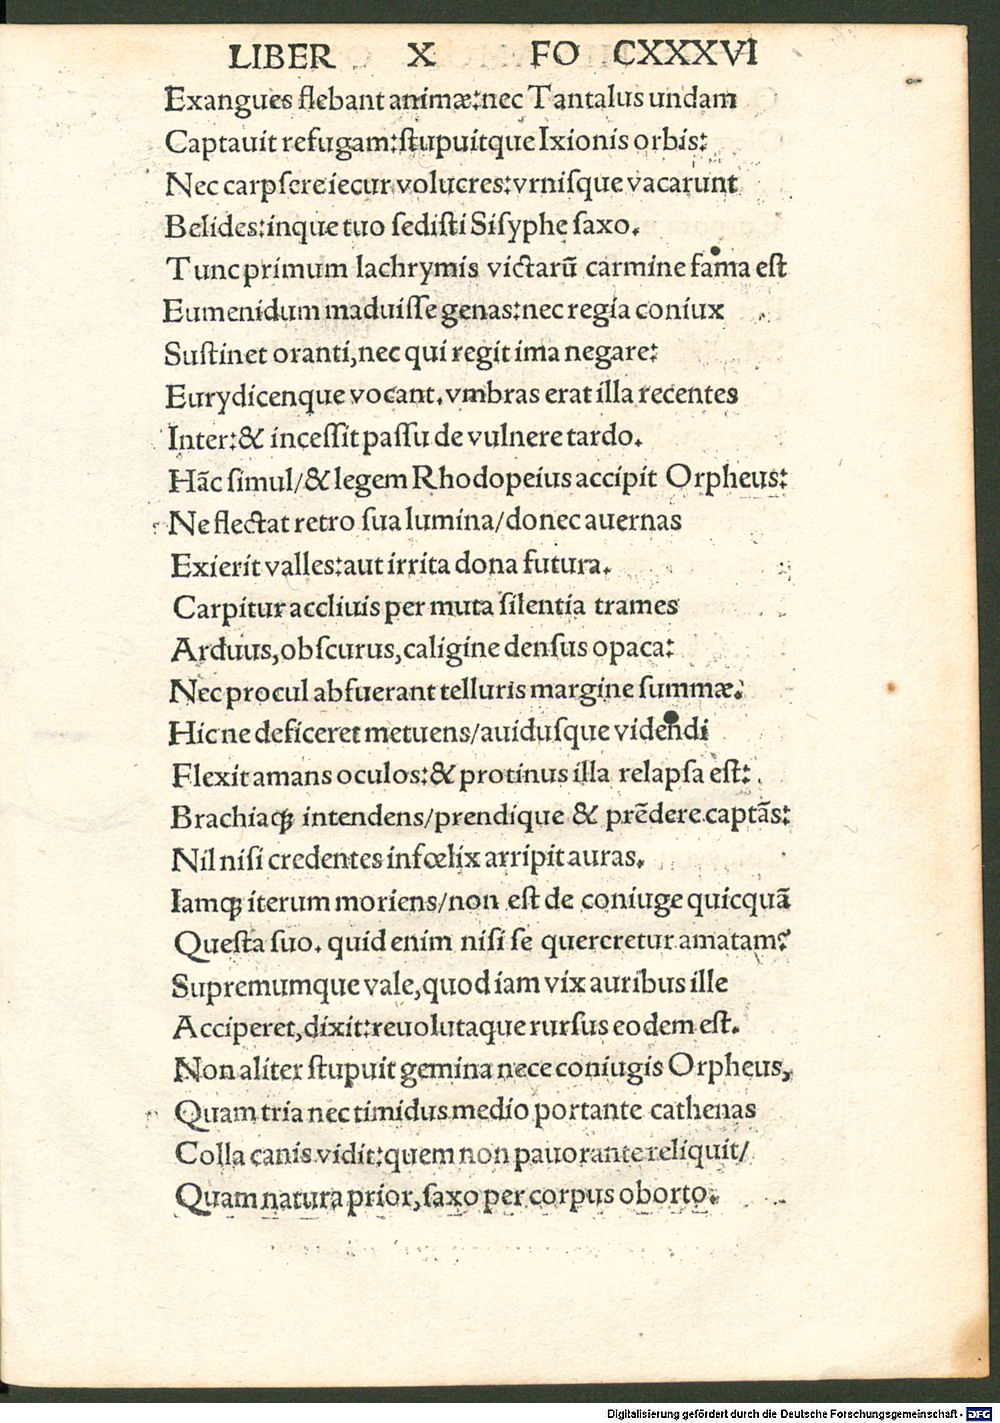 LIBER X FO CXXXVI
Exangues flebant animæ:nec Tantalus undam
Captauit refugam:ſtupuitque Ixionis orbis:
Nec carpſere iecur volucres:vrniſque vacarunt
Belides:inque tuo ſediſti Siſyphe ſaxo.
Tunc primum lachrymis victarũ carmine fama eſt
Eumenidum maduiſſe genas:nec regia coniux
Suſtinet oranti,nec qui regit ima negare:
Eurydicenque vocant.vmbras erat illa recentes
Inter:& inceſſit paſſu de vulnere tardo.
Hãc ſimul/& legem Rhodopeius accipit Orpheus:
Ne flectat retro ſua lumina/donec auernas
Exierit valles:aut irrita dona futura.
Carpitur accliuis per muta ſilentia trames
Arduus,obſcurus,caligine denſus opaca:
Nec procul abfuerant telluris margine ſummæ.
Hic ne deficeret metuens/auiduſque videndi
Flexit amans oculos:& protinus illa relapſa eſt:
Brachiaqꝫ intendens/prendique & prẽdere captãs:
Nil niſi credentes infœlix arripit auras.
Iamqꝫ iterum moriens/non eſt de coniuge quicquã
Queſta ſuo. quid enim niſi ſe quereretur amatam?
Supremumque vale,quod iam vix auribus ille
Acciperet,dixit:reuolutaque rurſus eodem eſt.
Non aliter ſtupuit gemina nece coniugis Orpheus,
Quam tria nec timidus medio portante cathenas
Colla canis vidit:quem non pauor ante reliquit/
Quam natura prior,ſaxo per corpus oborto.
Digitalisierung gefördert durch die Deutsche Forschungsgemeinschaft - DFG